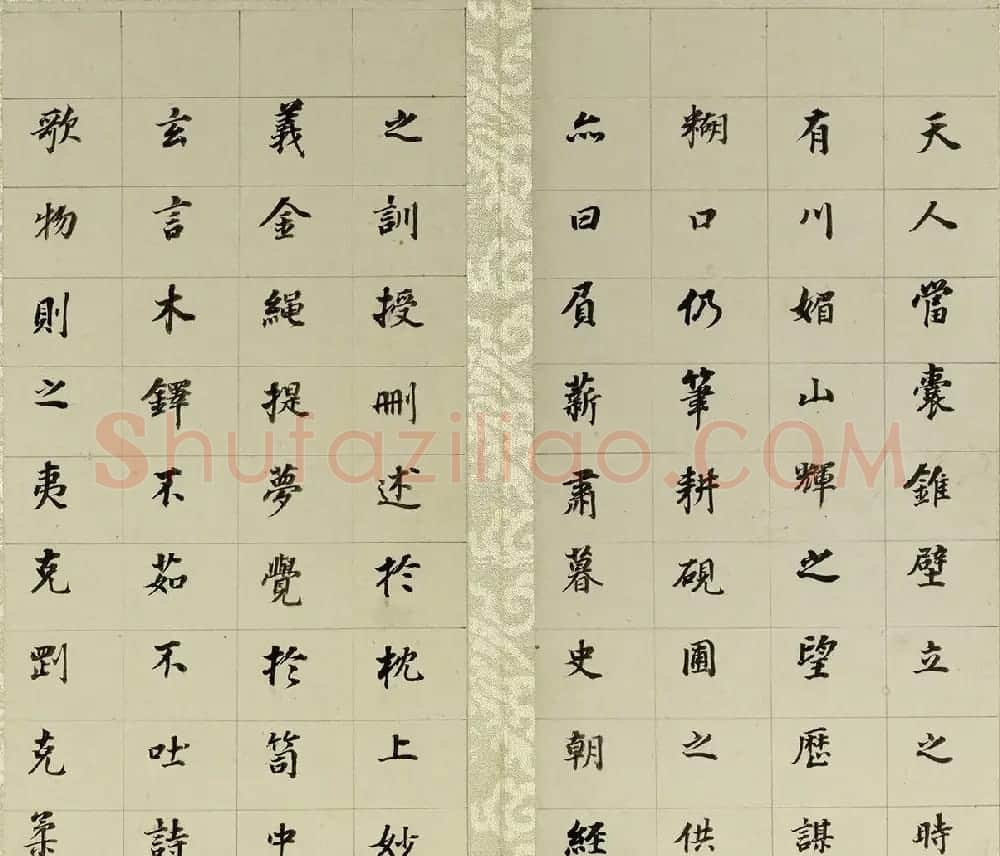 天人當囊錐壁立之時
有川媚山輝之望歷謀
糊口仍筆耕硯圃之供
亦曰眉薪肅暮史朝經
之訓授刪述於枕上妙
義金繩提夢覺於笥中
玄言木鐸不茹不吐詩
歌物則之夷克剛克柔
Shufaziliao.COM